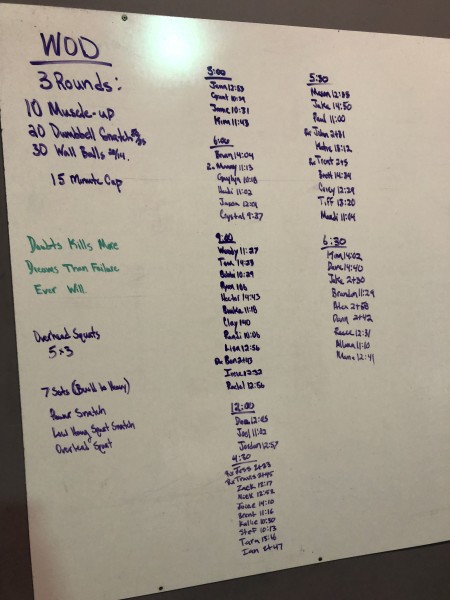 WOD
3 Rounds:
10 Muscle-up
20 Dumbbell Snatch
30 Wall Balls 20/14.
15 Minute Cap
Doubts Kills More
Dreams Than Failure
Ever Will.
Overhead Squats
5x3
7 Sets (Build to Heavy)
Power Snatch
Low Hang Squat Snatch
Overhead Squat
5:00
Jenn 12:53
Grant 10:29
Jamie 10:31
Kim 11:43
6:00
Brian 14:04
11:13
10:18
Heidi 11:02
Jason 12:01
Crystal 9:37
9:00
Woody 11:27
Tom 14:23
Bobbi 10:29
Ryan 166
Hector 14:43
11:18
Clay 140
Randi 10:06
Lisa 12:56
Rx Ben 2+43
Irene 12:32
Rachel 12:56
12:00
Joel 11:02
Jordan 12:57
4:30
Rx Jess 2+33
Rx Travis 2+45
Zack 12:17
Nick 12:52
14:10
Brent 11:16
Kallie 10:30
Stef 10:13
Tara 13:16
Ian 2+47
5:30
Mason 12:55
Jake 14:50
Paul 11:00
Rx John 2+31
Katie 13:12
Rx Trent 245
Brett 14:34
Corey 12:29
Tiff 13:20
Mandi 11:04
6:30
Kim 14:02
Dane 14:40
Jake 2+30
Brandon 11:29
Alex 2+58
Dang 2+42
Reece 12:31
Allison 11:10
12:41